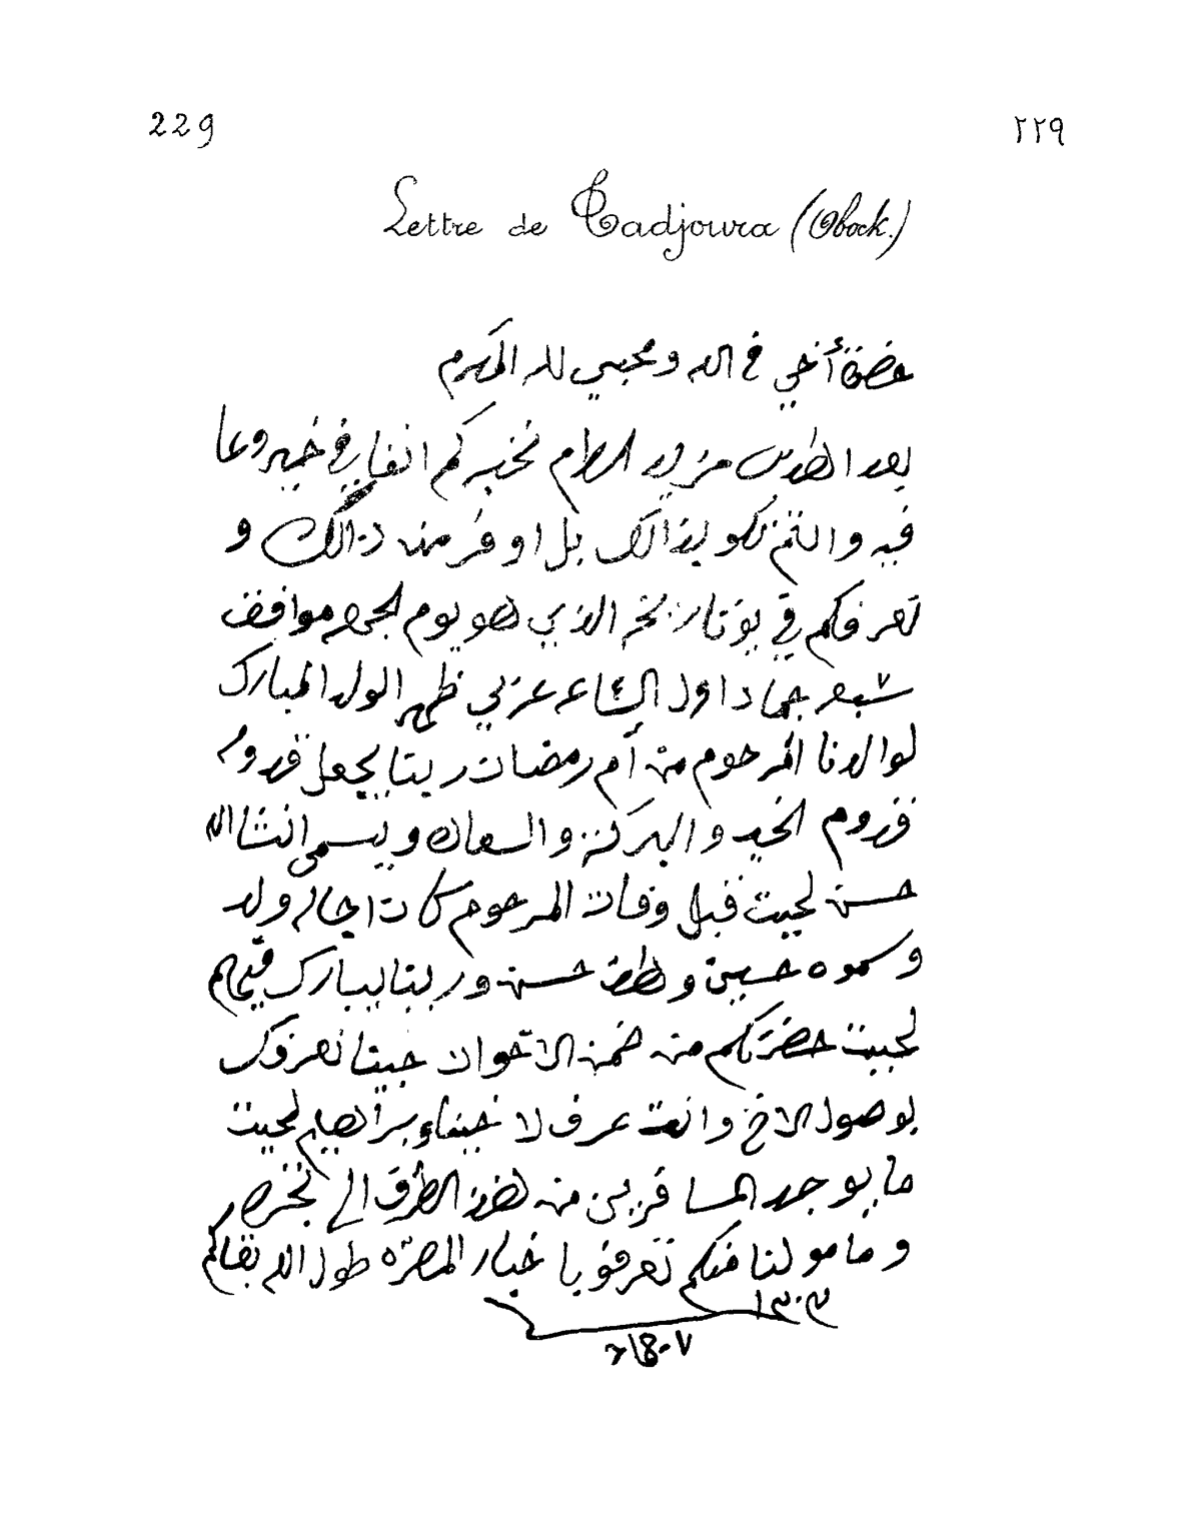 229
٢٢٩
Lettre de Tadjoura (Obock.)
حضرة أخي في الله ومحبي لله المكرم
بعد السلام نخبركم اننا في خير وعا
فيه وانتم تكونو بذالك بل اوفر من ذالك و
نعرفكم في يوم تاريخه الذي هو يوم الجمعه موافق
سبعه ٧ جماد اول الساعه عربي ظهر الولد المبارك
لوالدنا المرحوم من أم رمضان ربنا يجعل قدومه
قدوم الخير والبركة والسعاده ويسمى انشا الله
حسن لحيت قبل وفات المرحوم كان اجاله ولد
وسموه حسين وهذا حسن وربنا يبارك فيهم
لحيت حضرتكم من ضمن الاخوان جينا نعرفوك
بوصول الاخ وانت عرف لاخينا ابراهيم لحيت
ما يوجد المسافرين من هذه الطرق الى تحرير
ومامولنا منكم تعرفونا باخبار المسره طول الله بقاكم
١٣٠٣